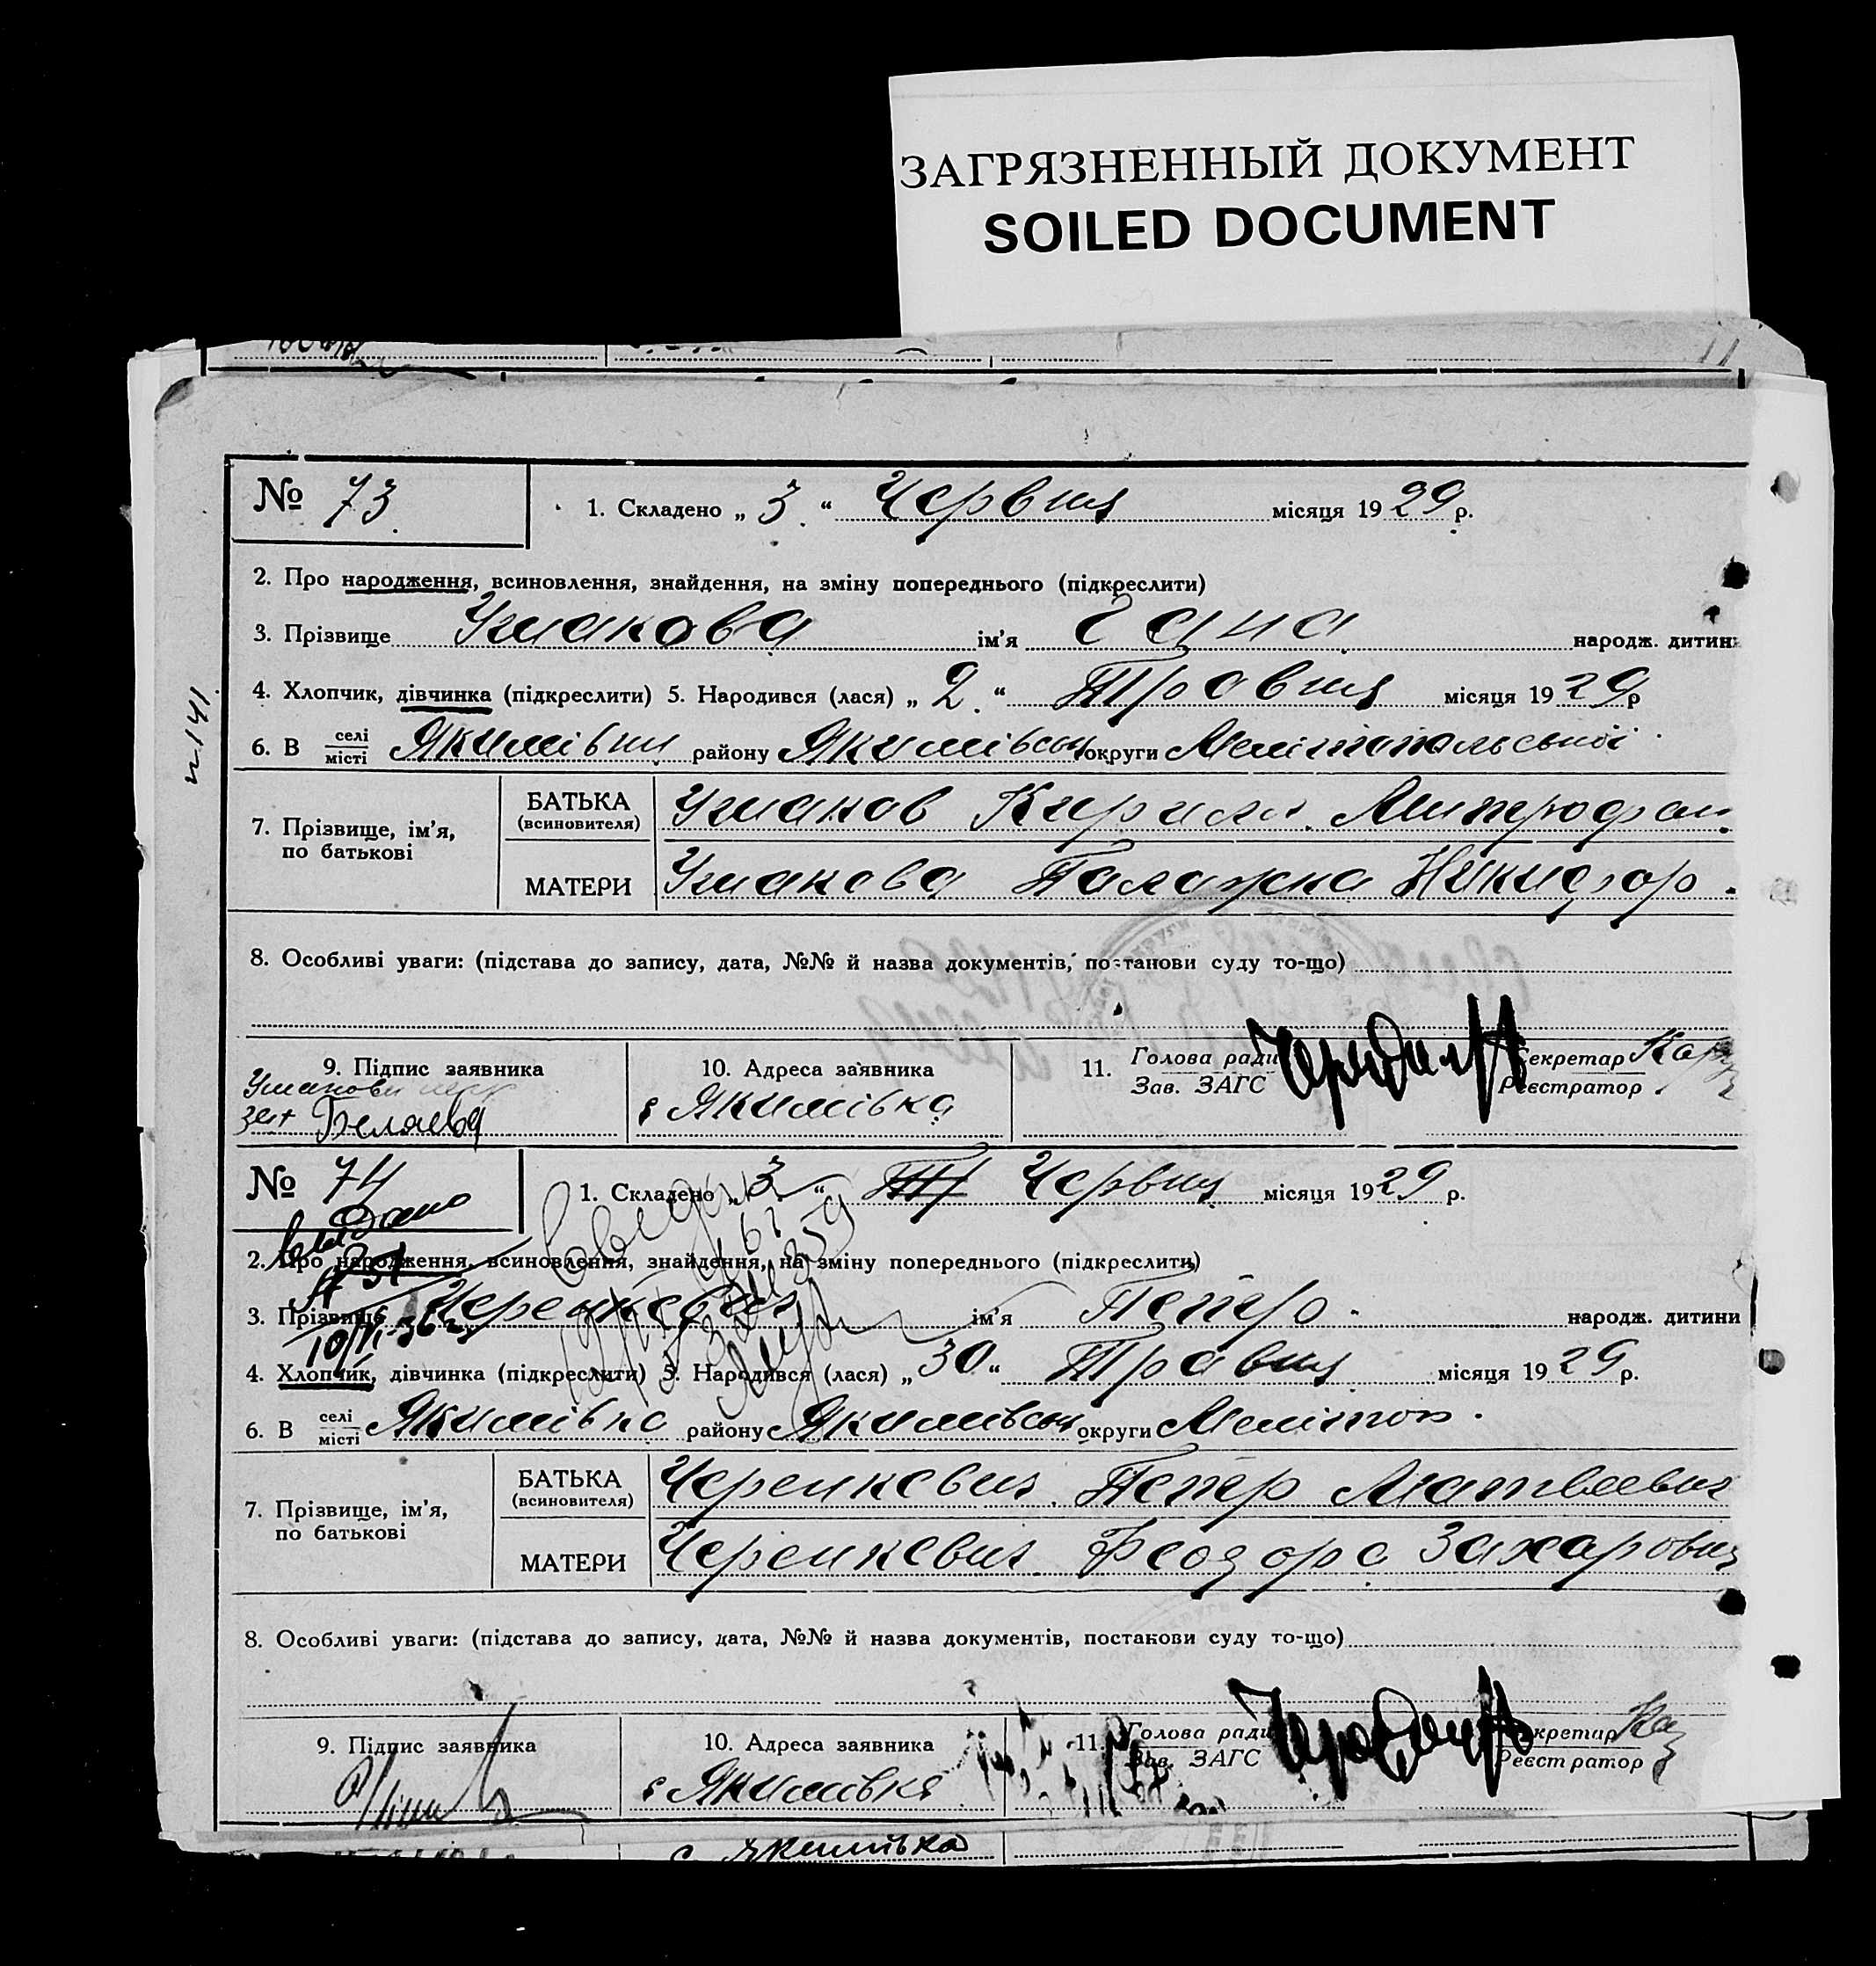 ЗАГРЯЗНЕННЫЙ ДОКУМЕНТ
SOILED DOCUMENT
№ 73.
1. Складено „ 3. “ Червня місяця 1929 р.
2. Про народження, всиновлення, знайдення, на зміну попереднього (підкреслити)
3. Прізвище Ушакова ім'я Гана народж. дитин
4. Хлопчик, дівчинка (підкреслити) 5. Народився (лася) „ 2. “ Травня місяця 1929 р
6. В селі місті Якимівці району Якимівськ округи Мелітопольської
7. Прізвище, ім'я, по батькові
БАТЬКА (всиновителя) Ушаков Кирило. Митрофан.
МАТЕРИ Ушакова Палажка Никифор.
8. Особливі уваги: (підстава до запису, дата, №№ й назва документів, постанови суду то-що)
9. Підпис заявника
Беляева
10. Адреса заявника
с Якимівка
11. Голова ради Зав. ЗАГС
Секретар Реєстратор
№ 141
№ 74
1. Складено „ 3 “ Червня місяця 1929 р.
Выдано
10/VI-36 г.
2. Про народження, всиновлення, знайдення, на зміну попереднього (підкреслити)
3. Прізвище Черенкевич ім'я Петро. народж. дитини
4. Хлопчик, дівчинка (підкреслити) 5. Народився (лася) „ 30 “ Травня місяця 1929 р.
6. В селі місті Якимівка району Якимівськ округи Мелітоп.
7. Прізвище, ім'я, по батькові
БАТЬКА (всиновителя) Черенкевич. Петер Матвеевич
МАТЕРИ Черенкевич. Феодора Захаровн
8. Особливі уваги: (підстава до запису, дата, №№ й назва документів, постанови суду то-що)
9. Підпис заявника
10. Адреса заявника
с Якимівка
11. Голова ради Зав. ЗАГС
Секретар Реєстратор
с Якимівка